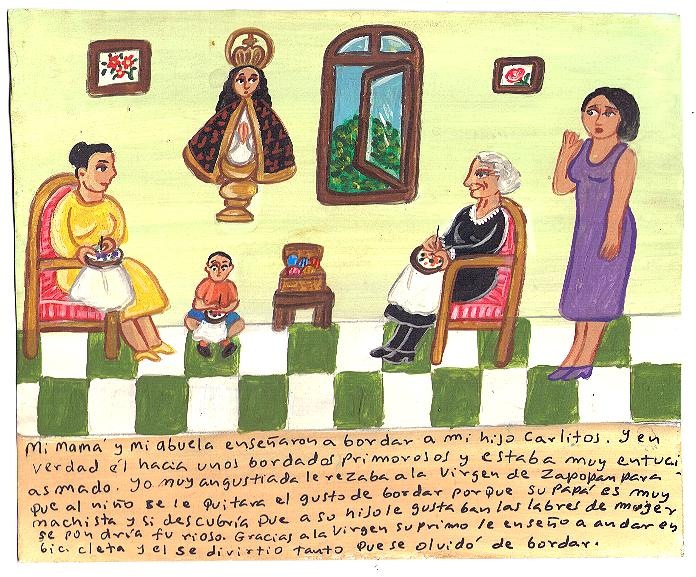 Mi Mamá y Mi abuela enseñaron a bordar a mi hijo Carlitos. y en
verdad él hacia unos bordados primorosos y estaba muy entuci
asmado. yo muy angustiada le rezaba a la Virgen de Zapopan para
que al niño se le quitara el gusto de bordar porque su Papá es muy
machista y si descubría que a su hijo le gustaban las labres de mujer
se pondría furioso. Gracias a la Virgen su primo le enseño a andar en
bicicleta y el se divirtio tanto que se olvidó de bordar.